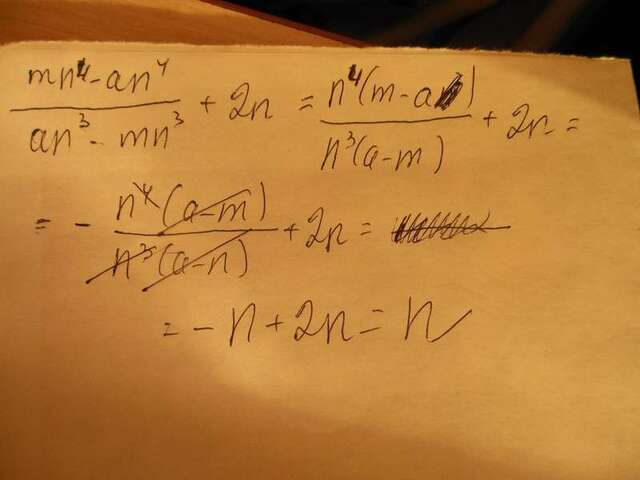 (mn⁴-an⁴)/(an³-mn³) + 2n = n⁴(m-a)/n³(a-m) + 2n =
= - n⁴(a-m)/n³(a-n) + 2n =
= -n+2n=n